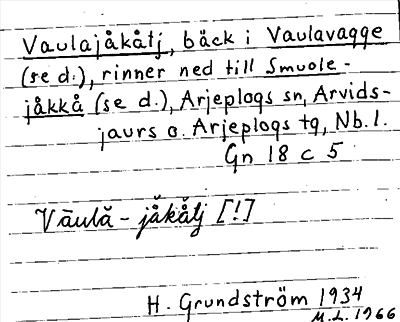 Vaulajåkåtj, bäck i Vaulavagge
(se d.), rinner ned till Smuole-
jåkkå (se d.), Arjeplogs sn, Arvids-
jaurs o. Arjeplogs tg, Nb. l.
Gn 18 c 5
Vāulă - jåkåtj [!]
H. Grundström 1934
M.L. 1966